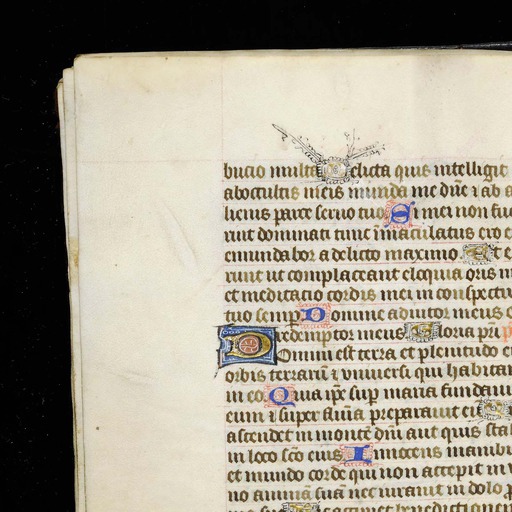 bucio multa Delicta quis intelligit
ab occultis meis munda me dñe ⁊ ab a
lienis parce seruo tuo Si mei non fue
rint dominati tunc īmaculatus ero et
emundabor a delicto maximo. Et e
runt ut complaceant eloquia oris m
et meditacio cordis mei in conspectu
tuo semp Domine adiutor meus et
redemptor meus Gloria pri
Domini est terra et plenitudo ei
orbis terrarū ⁊ vniuersi qui habitan
in eo. Quia ip̄e sup maria fundaui
eum ⁊ super flūia preparauit eū
ascendet in montē dn̄i aut quis stab
in loco sc̄o eius Innocens manibu
et mundo corde qui non accepit in v
no animā suā nec iurauit in dolo p